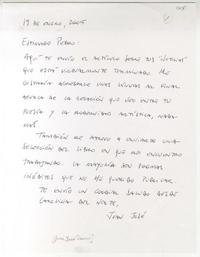 19 DE ENERO, 2005
ESTIMADO PEDRO:
AQUÍ TE ENVÍO EL ARTÍCULO SOBRE TUS
QUE ESTÁ VIRTUALMENTE TERMINADO. ME
GUSTARÍA AGREGARLE UNAS LÍNEAS AL FINAL
ACERCA DE LA RELACIÓN QUE VEO ENTRE TU
POESÍA Y LA MODERNIDAD ARTÍSTICA, NADA
MÁS.
TAMBIÉN ME ATREVO A ENVIARTE UNA
SELECCIÓN DEL LIBRO EN QUE ME ENCUENTRO
TRABAJANDO. LA MAYORÍA SON POEMAS
INÉDITOS QUE NO HE QUERIDO PUBLICAR.
TE ENVÍO UN CORDIAL SALUDO DESDE
CAROLINA DEL NORTE,
JUAN JOSÉ